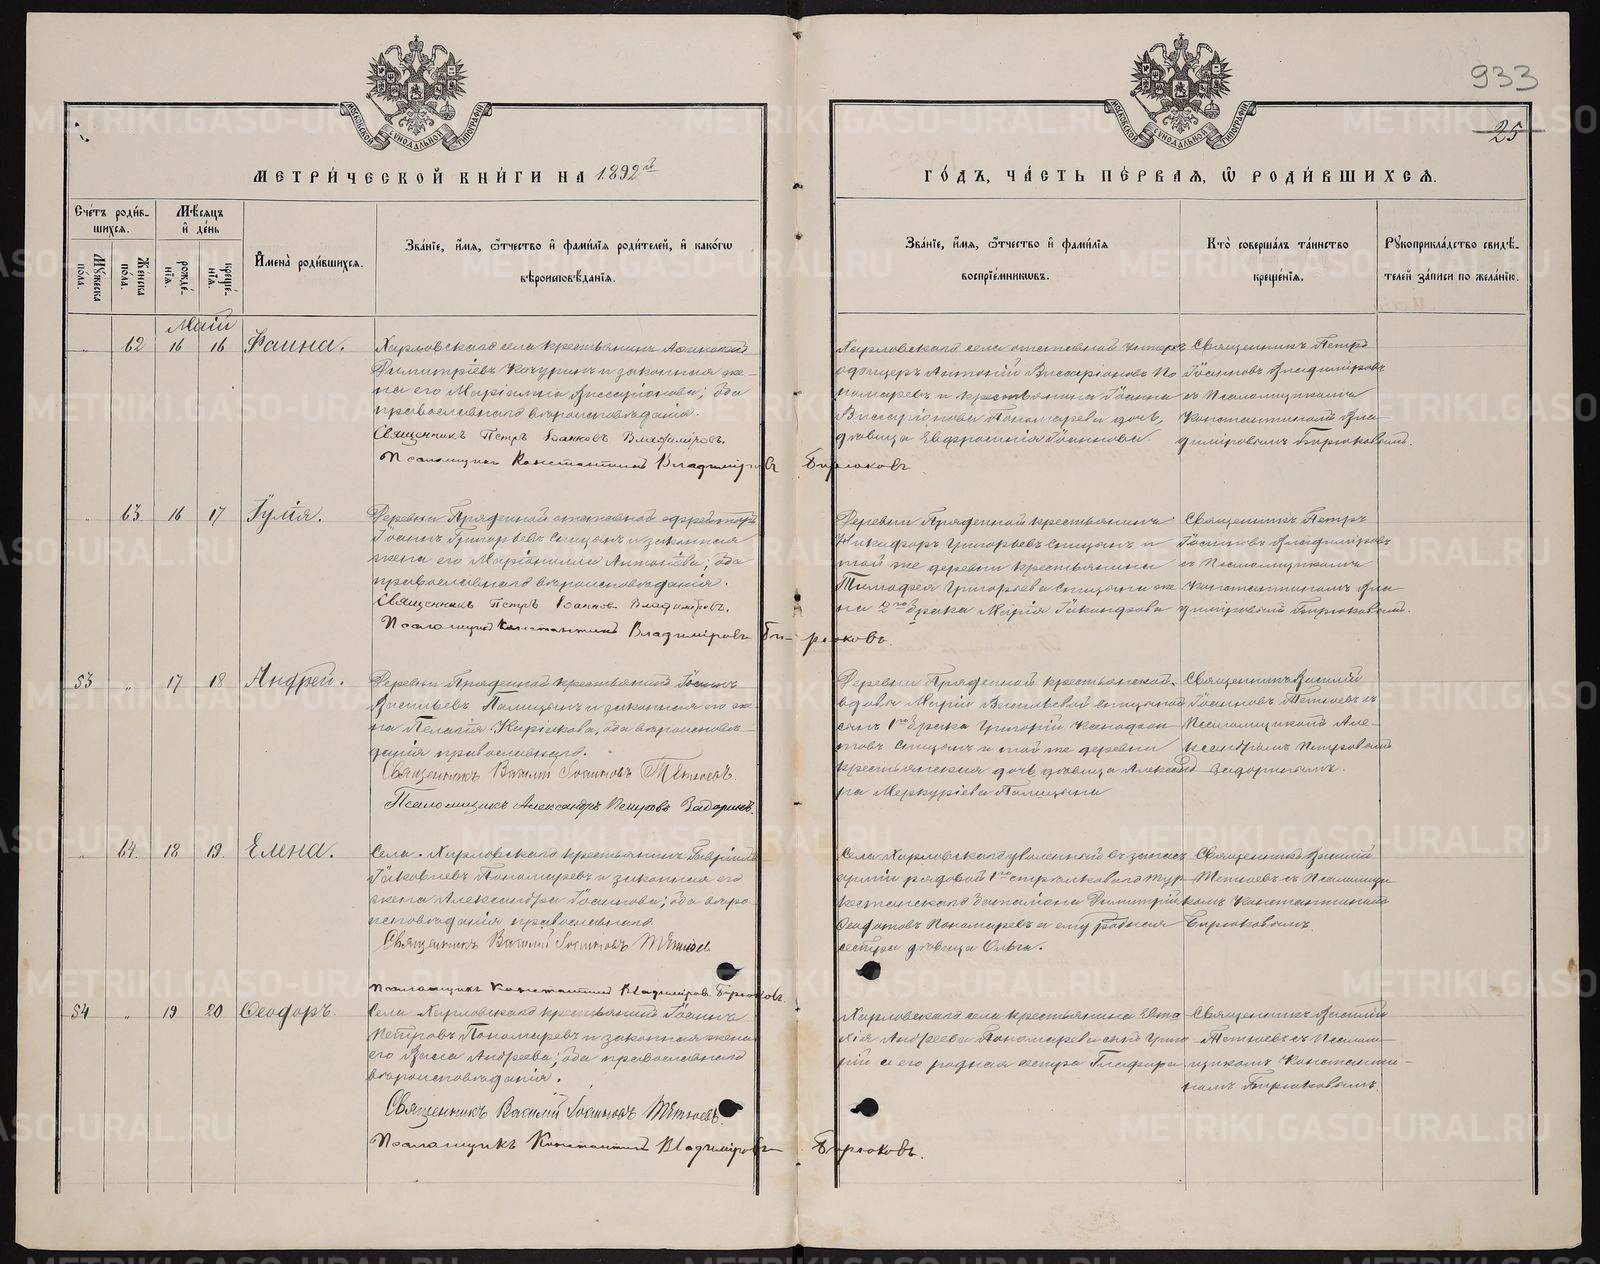 933
25
МЕТРИ́ЧЕСКОЙ КНИ́ГИ НА 1892й
ГО́ДЪ, ЧА́СТЬ ПЕ́РВАЯ, Ѽ РОДИ́ВШИХСЯ.
Сче́тъ роди́в-
шихся.
Мѣ́сяцъ
и҆ де́нь
Мꙋ́жеска по́ла.
Же́нска по́ла.
рожде́-
нїя.
креще́-
нїя.
И҆мена̀ роди́вшихся.
Зва́нїе, и҆́мя, ѻ҆́тчество и҆ фами́лїя роди́телей, и҆ како́гѡ
вѣроисповѣ́данїя.
Зва́нїе, и҆́мя, ѻ҆́тчество и҆ фами́лїя
воспрїе́мникѡвъ.
Кто̀ соверша́лъ та́инство
креще́нїя.
Рꙋкоприкла́дство свидѣ́-
телей за́писи по жела́нїю.
Май
62 16 16 Фаина.
Харловского села крестьянинъ
Димитріевъ Качуринъ и законная же-
на его Маріамна Виссаріонова; оба
православнаго вѣроисповѣданія.
Священникъ Петръ Іоанновъ Владиміровъ.
Псаломщикъ Константинъ Владиміровъ Бирюковъ.
Харловского села отставной унтеръ
офицеръ Антоній Виссаріоновъ По
номаревъ и крестьянина Іоанна
Виссаріонова Пономарева дочь,
дѣвица Евфросинія Іоаннова.
Священникъ Петръ
Іоанновъ Владиміровъ
съ Псаломщикомъ
Константиномъ Вла-
диміровымъ Бирюковымъ.
63 16 17 Іулія.
Деревни Пряденной отставной ефрейторъ
Іоаннъ Григорьевъ Спицынъ и законная
жена его Маріамна Антонова; оба
православнаго вѣроисповѣданія.
Священникъ Петръ Іоанновъ Владиміровъ.
Псаломщикъ Константинъ Владиміровъ Би- рюковъ.
Деревни Пряденной крестьянинъ
Никифоръ Григорьевъ Спицынъ и
той же деревни крестьянина
Тимофея Григорьева Спицына же
на 2го брака Марія
Священникъ Петръ
Іоанновъ Владиміровъ
съ Псаломщикомъ
Константиномъ Вла-
диміровымъ Бирюковымъ.
53 „ 17 18 Андрей.
Деревни Пряденной крестьянинъ Іоаннъ
Васильевъ Палицынъ и законная его же-
на Пелагія Кирикова, оба вѣроисповѣ-
данія православнаго.
Священникъ Василій Іоанновъ Тѣтюевъ.
Псаломщикъ Александръ Петровъ Задоринъ.
Деревни Пряденной крестьянской
вдовы Маріи Васильевой Спицыной
сынъ 1го брака Григорій
Спицынъ и той же деревни
крестьянская дочь дѣвица Александ
ра Меркуріева Палицына
Священникъ Василій
Іоанновъ Тѣтюевъ съ
Псаломщикомъ Але-
ксандромъ Петровымъ
Задоринымъ.
„ 64 18 19. Елена.
Села Харловского крестьянинъ Гавріилъ
Іаковлевъ Пономаревъ и законная его
жена Александра Іоаннова; оба вѣро
исповѣданія православнаго
Священникъ Василій Іоанновъ Тѣтюевъ
Псаломщикъ Константинъ Владиміровъ Бирюковъ.
Села Харловского уволенный въ запасъ
арміи рядовой 1го стрѣлковаго Тур
кестанскаго баталіона Димитрій
Ѳедотовъ Пономаревъ и ему родная
сестра дѣвица Ольга.
Священникъ Василій
Тѣтюевъ съ Псаломщи
комъ Константиномъ
Бирюковымъ.
54 „ 19 20 Ѳеодоръ.
Села Харловского крестьянинъ Іоаннъ
Петровъ Пономаревъ и законная жена
его Васса Андреева; оба православнаго
вѣроисповѣданія.
Священникъ Василій Іоанновъ Тѣтюевъ.
Псаломщикъ Константинъ Владиміровъ Бирюковъ.
Харловского села крестьянина Евти
хія Андреева Пономарева сынъ Григо
рій и его родная сестра Глафира
Священникъ Василій
Тѣтюевъ съ Псалом-
щикомъ Константи-
номъ Бирюковымъ.